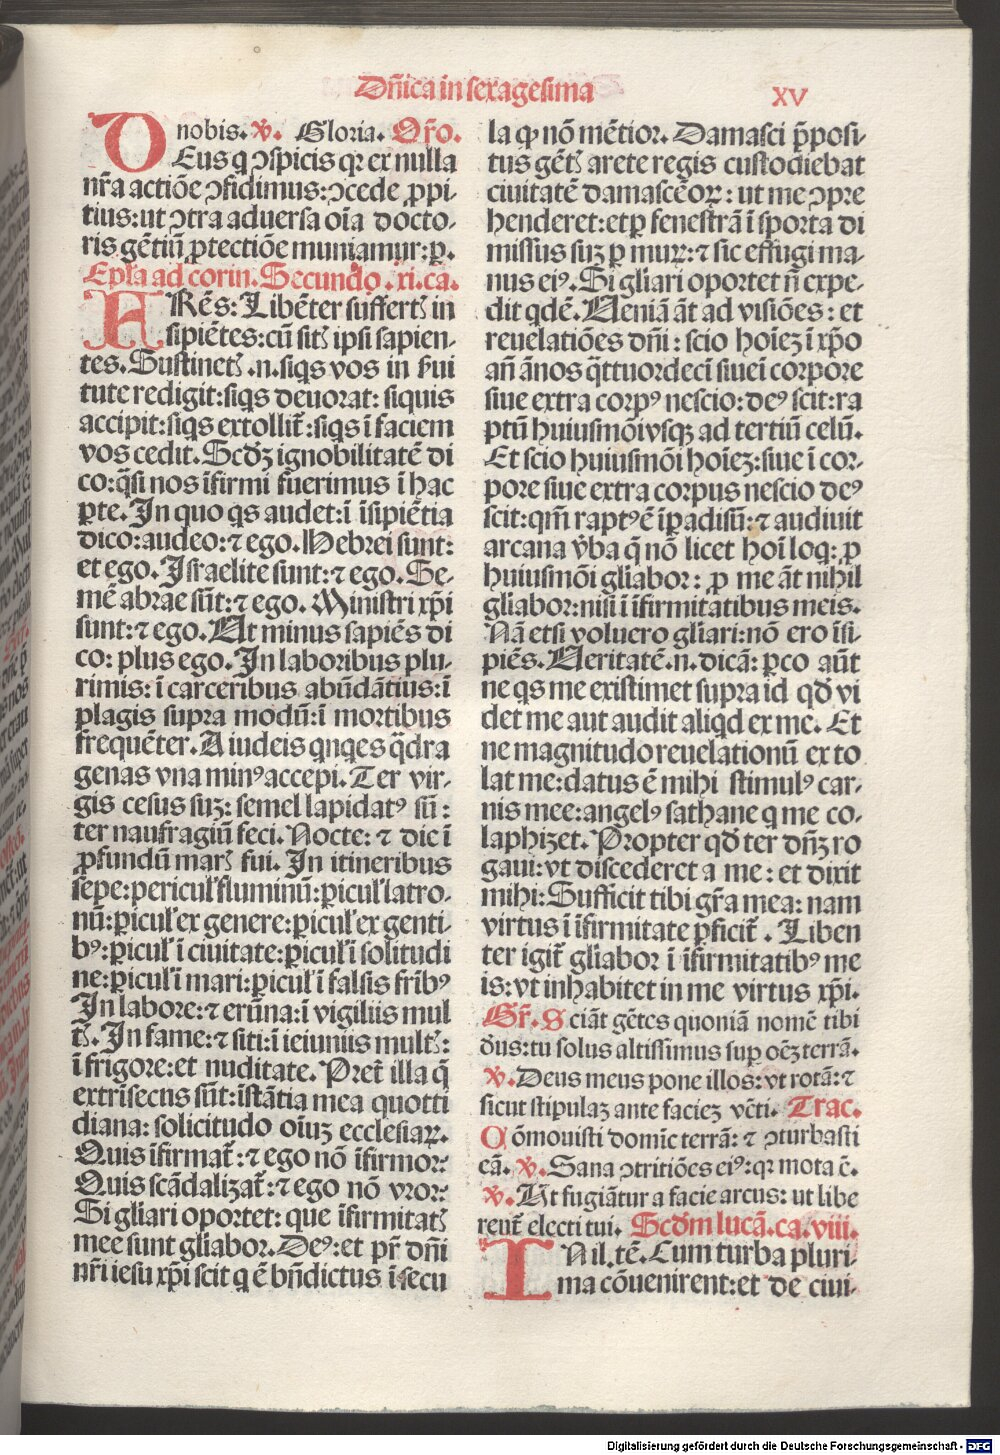 Dn̄ica in sexagesima
XV
nobis. V̛. Gloria. Or̄o.
DEus q ↄspicis qꝛ ex nulla
nr̄a actiōe ↄfidimus: ↄcede ꝓpi-
tius: ut ↄtra aduersa oīa docto-
ris gētiū ꝓtectiōe muniamur: ꝑ.
Epl̄a ad corin. Secundo .xi. ca.
FRēs: Libēter suffertꝭ in
sipiētes: cū sitꝭ ipsi sapien-
tes. Sustinetꝭ .n. siqs vos in ẜui
tute redigit: siqs deuorat: siquis
accipit: siqs extollit̄: siqs ī faciem
vos cedit. Scd̄ꝫ ignobilitatē di
co: q̄si nos īfirmi fuerimus ī hac
ꝑte. In quo qs audet: ī īsipiētia
dico: audeo: ⁊ ego. Hebrei sunt:
et ego. Israelite sunt: ⁊ ego. Se-
mē abrae sūt: ⁊ ego. Ministri xp̄i
sunt: ⁊ ego. Ut minus sapiēs di
co: plus ego. In laboribus plu-
rimis: ī carceribus abūdātius: ī
plagis supra modū: ī mortibus
frequēter. A iudeis qnqes q̄dra
genas vna minꝰ accepi. Ter vir-
gis cesus suꝫ: semel lapidatꝰ sū:
ter naufragiū feci. Nocte: ⁊ die ī
ꝓfundū marꝭ fui. In itineribus
sepe: pericul' fluminū: ꝑicul' latro-
nū: ꝑicul' ex genere: ꝑicul' ex genti-
bꝰ: ꝑicul' ī ciuitate: ꝑicul' ī solitudi
ne: ꝑicul' ī mari: ꝑicul' ī falsis fr̄ibꝰ
In labore: ⁊ erūna: ī vigiliis mul
tꝭ. In fame: ⁊ siti: ī ieiuniis multꝭ:
ī frigore: et nuditate. Pret̄ illa q̄
extrīsecus sūt: īstātia mea quotti
diana: solicitudo oīuꝫ ecclesiaꝝ.
Quis īfirmat̄: ⁊ ego nō īfirmor:
Quis scādalizat̄: ⁊ ego nō vror:
Si gl̄iari oportet: que īfirmitatꝭ
mee sunt gl̄iabor. Deꝰ: et pr̄ dn̄i
nr̄i iesu xp̄i scit q ē bn̄dictus ī secu
la ꝙ nō mētior. Damasci p̄posi-
tus gētꝭ arete regis custodiebat
ciuitatē damascēoꝝ: ut me ↄpre
henderet: et ꝑ fenestrā ī sporta di
missus suꝫ ꝑ muꝝ: ⁊ sic effugi ma-
nus eiꝰ. Si gl̄iari oportet n̄ expe-
dit qdē. Ueniā āt ad visiōes: et
reuelatiōes dn̄i: scio hoīeꝫ ī xp̄o
an̄ ānos q̄ttuordeci siue ī corpore
siue extra corpꝰ nescio: deꝰ scit: ra
ptū huiusmōi vsqꝫ ad tertiū celū.
Et scio huiusmōi hoīeꝫ: siue ī cor-
pore siue extra corpus nescio deꝰ
scit: qm̄ raptꝰ ē ī ꝑadisū: ⁊ audiuit
arcana v̄ba q̄ nō licet hoī loq: ꝓ
huiusmōi gl̄iabor: ꝓ me āt nihil
gl̄iabor: nisi ī īfirmitatibus meis.
Nā etsi voluero gl̄iari: nō ero īsi-
piēs. Ueritatē .n. dicā: ꝑco aūt
ne qs me existimet supra id qd̄ vi
det me aut audit aliqd ex me. Et
ne magnitudo reuelationū exto
lat me: datus ē mihi stimulꝰ car-
nis mee: angelꝰ sathane q me co-
laphizet. Propter qd̄ ter dn̄ꝫ ro
gaui: vt discederet a me: et dixit
mihi: Sufficit tibi gr̄a mea: nam
virtus ī īfirmitate ꝑficit̄. Liben
ter igit̄ gl̄iabor ī īfirmitatibꝰ me
is: vt inhabitet in me virtus xp̄i.
Gr̄. Sciāt gētes quoniā nomē tibi
d̄us: tu solus altissimus suꝑ oēꝫ terrā.
V̛. Deus meus pone illos: vt rotā: ⁊
sicut stipulaꝫ ante facieꝫ vēti. Trac.
Cōmouisti domīe terrā: ⁊ ↄturbasti
eā. V̛. Sana ↄtritiōes eiꝰ: qꝛ mota ē.
V̛. Ut fugiātur a facie arcus: ut libe
rent̄ electi tui. Scd̄m lucā. ca. viii.
INil. tē. Cum turba pluri-
ma cōuenirent: et de ciui-
Digitalisierung gefördert durch die Deutsche Forschungsgemeinschaft - DFG